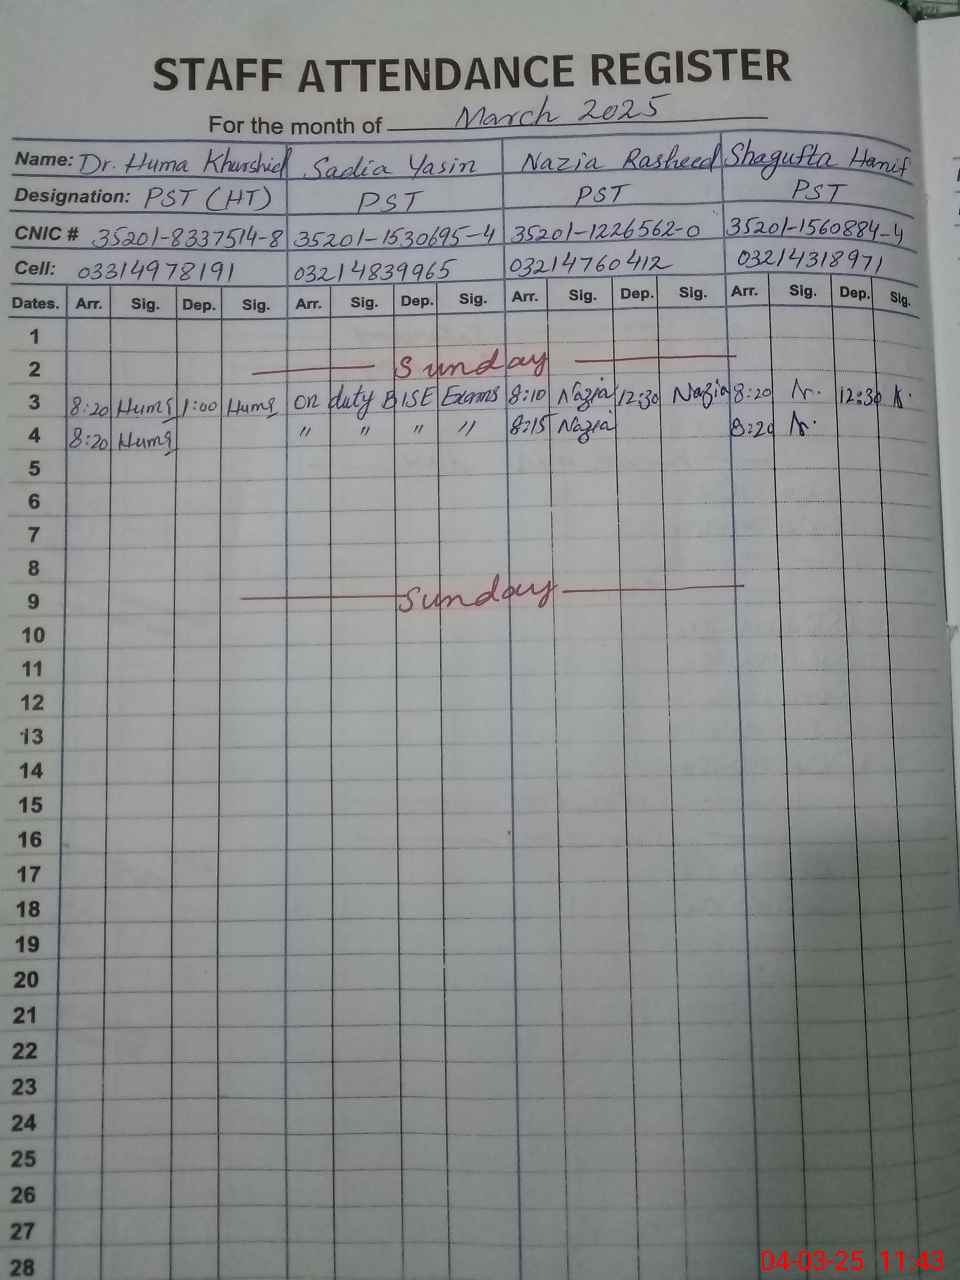 STAFF ATTENDANCE REGISTER
For the month of March 2025
Name: Dr. Huma Khurshid Sadia Yasin Nazia Rasheed Shagufta Hanif
Designation: PST (HT) PST PST PST
CNIC # 35201-8337514-8 35201-1530695-4 35201-1226562-0 35201-1560884-4
Cell: 03314978191 03214839965 03214760412 03214318971
Dates. Arr. Sig. Dep. Sig. Arr. Sig. Dep. Sig. Arr. Sig. Dep. Sig. Arr. Sig. Dep. Sig.
1
2 Sunday
3 8:20 Huma 1:00 Huma on duty BISE Exams 8:10 Nazia 12:30 Nazia 8:20 12:30
4 8:20 Huma " " " " 8:15 Nazia 8:20
5
6
7
8
9 Sunday
10
11
12
13
14
15
16
17
18
19
20
21
22
23
24
25
26
27
28
04-03-25 11:43